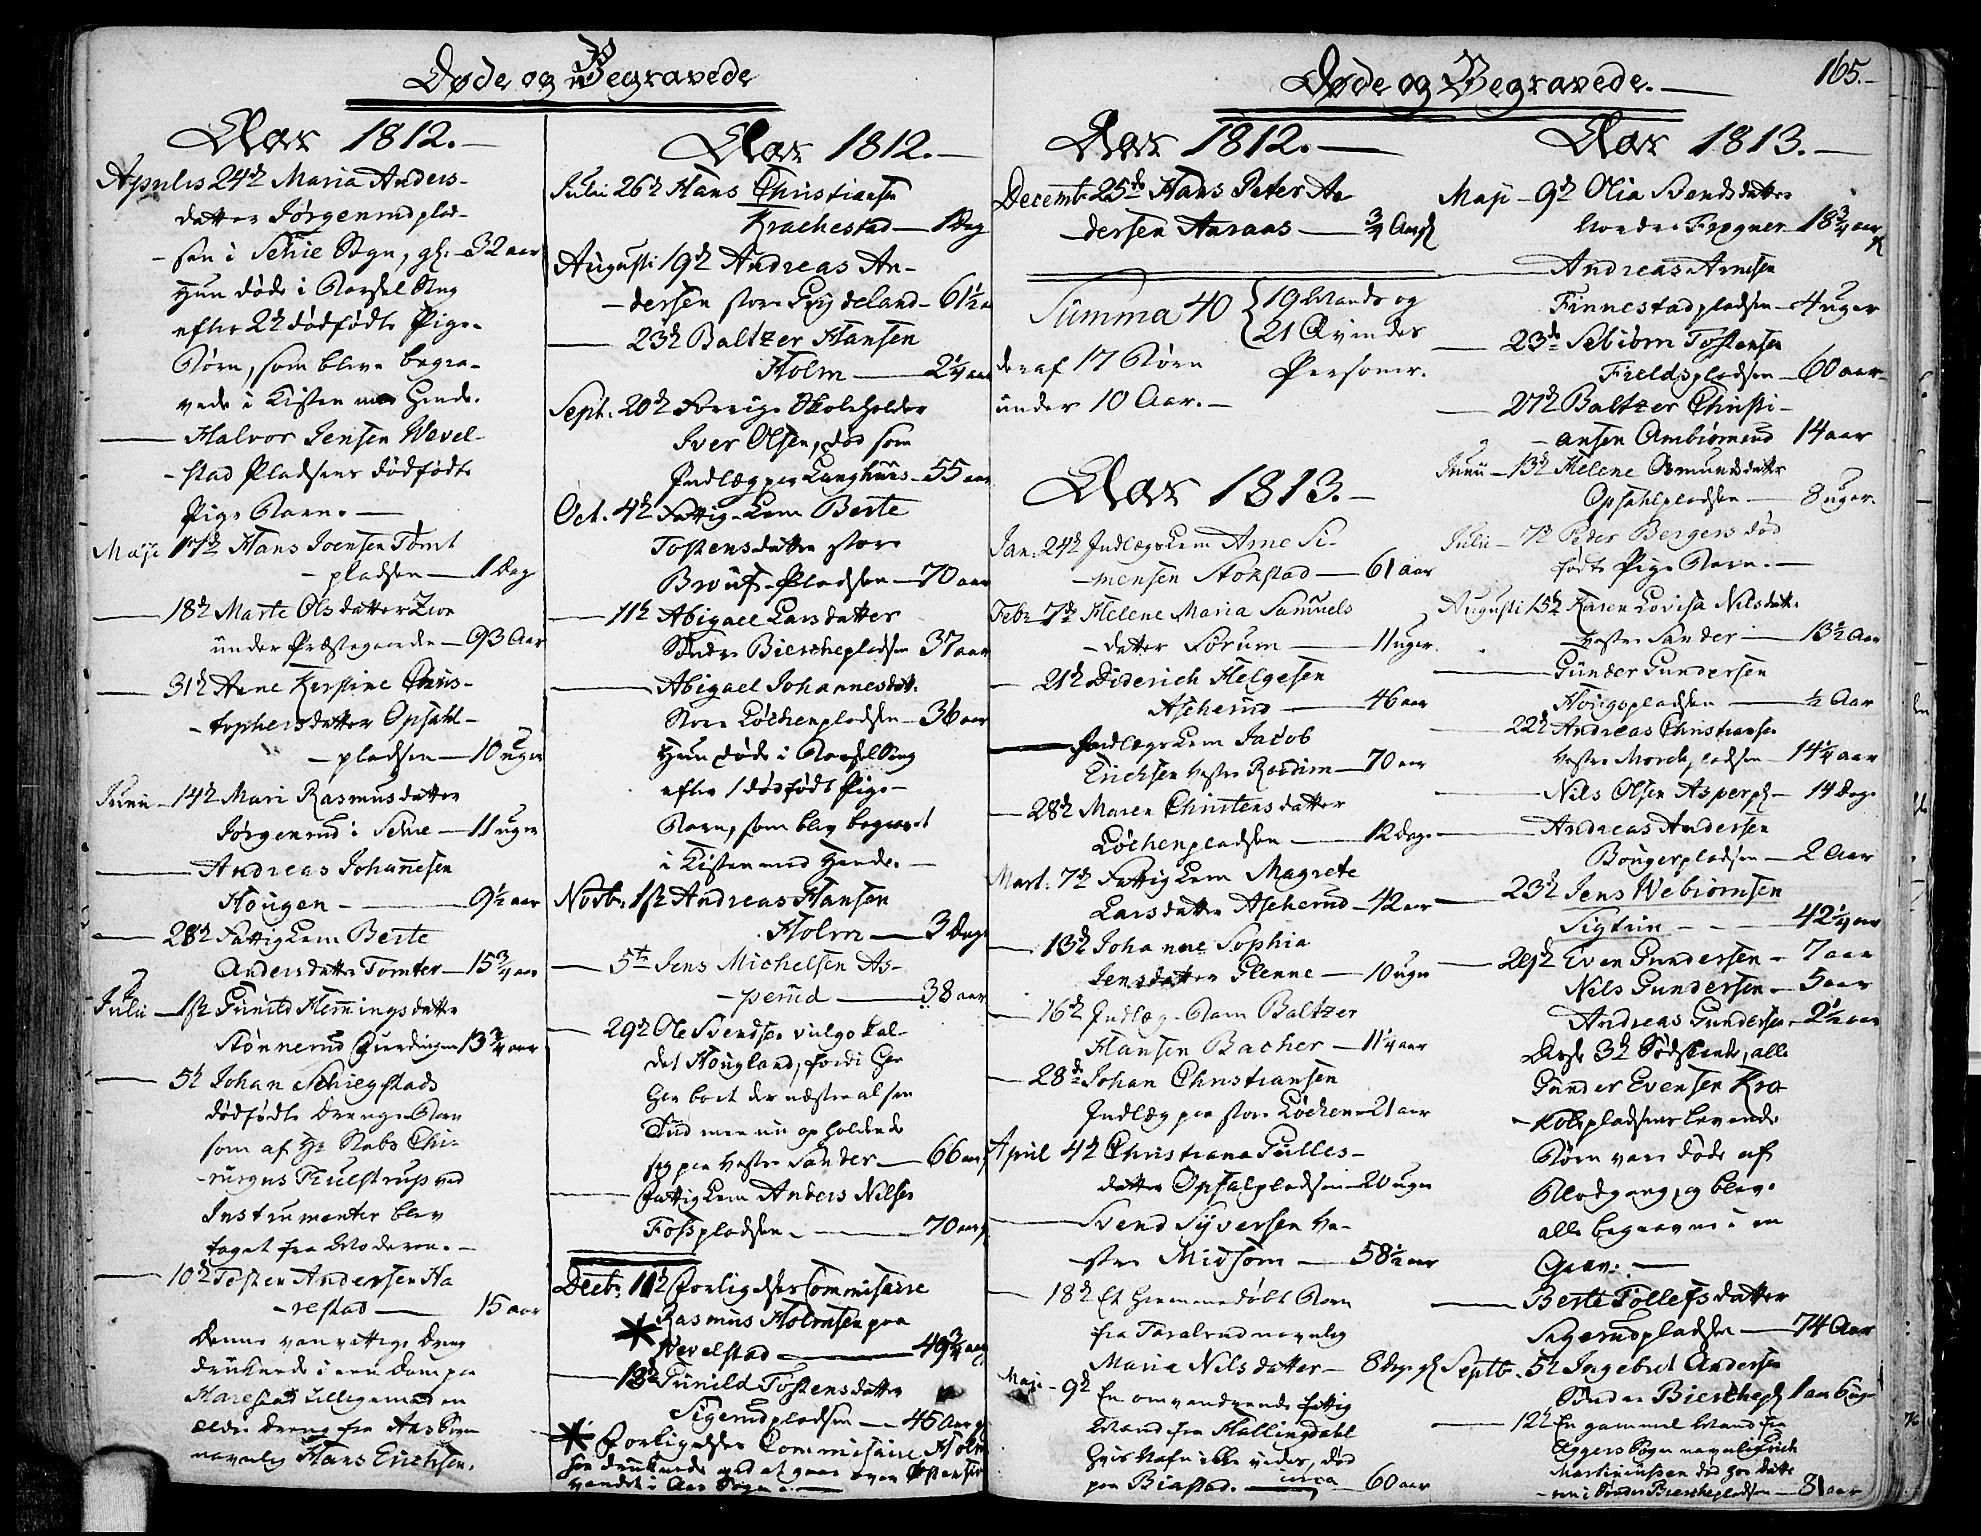 Døde og Begravede
Aar 1812.
Aprilis 24de Maria Anders-
datter Jørgenrudplad-
sen i Schie Sogn, gl. 32 aar
Hun døde i Barsel Sæng
efter 2de dødfødte Pige-
Børn, som bleve begra-
vede i Kisten med Hende.
Halvor Jensen Wevel-
stad Pladsens dødfødte
Pige Barn.
Maji 17de Hans Joensen Tomt
pladsen 1 Dag
18de Marte Olsdatter
under Præstegaarden 93 Aar
31te Anne Kirstine Chris-
tophersdatter Opsahl-
pladsen 10 uger
Junii 14de Mari Rasmusdatter
Jørgenrud i Schie 11 uger
Andreas Johannesen
Hougen 9½ aar
28de Fattig Lem Berte
Andersdatter Tomter 15¾ aar
Julii 1ste Gunild Hemmingsdatter
Stønnerud 13¾ aar
5te Johan Schiegstads
dødfødte Drenge Barn
som af Hr Stabs Chi-
rurgus Thulstrup ved
Instrumenter blev
taget fra Moderen.
10de Tosten Andersen Ha
restad 15 aar
Denne vanvittige Dreng
druknede i een Dam paa
Harestad tilligemed en
ældre Dreng fra Aas Sogn
navnlig Hans Erichsen.
Aar 1812.
Julii 26de Hans Christiansen
Krachestad 1 Dag
Augusti 19de Andreas An-
dersen store 61½ a
23de Baltzer Hansen
Holm 2¼ aar
Sept. 20de Forrige Skoleholder
Iver Olsen, død som
Indlæg paa Langhuus 55 aar
Oct. 4de Fattig-Lem Berte
Tostensdatter store
Pladsen 70 aar
11te Abigael Larsdatter
Søndre Bierchepladsen 37 aar
Abigael Johannesdatt.
Store Løchenpladsen 36 aar
Hun døde i Barsel Sæng
efter 1 dødfødt Pige-
Barn, som blev begravet
i Kisten med Hende.
Novb. 1ste Andreas Hansen
Holm 3 Dage
5te Jens Michelsen As-
perud 38 aar
29de Ole Svendsen vulgo kal-
det Hougland, fordi Han
Han boet der næsten al sin
Tid men nu opholdende
sig paa Vestre Sander 66 aar
Fattig Lem Anders Nilsen
Fosspladsen 70 aar
Decbr. 11te Forligelses Commissaire
* Rasmus Holmsen paa
Wevelstad 49¾ aar
18de Gunild Tostensdatter
Sigerudpladsen 45 Aar
* Forligelses Commissaire Holm
sen druknede ved at gaae over Østensiø
vandet i Aas Sogn.
Døde og Begravede. 165.
Aar 1812.
Decemb. 25de Hans Peter An
dersen Aaraas ¾ Aar
Summa 40 { 19 Mands og
21 Qvindes
Personer.
deraf 17 Børn
under 10 Aar.
Aar 1813.
Jan. 24de Indlægs Lem Arne Si-
mensen Stokstad 61 aar
Febr. 7de Helene Maria Samuels
datter Sørum 11 uger
21de Diderich Helgesen
Ascherud 46 aar
Indlægs Lem Jacob
Erichsen Vestre 70 aar
28de Maren Christensdatter
Løchenpladsen 12 Dage
Mart. 7de Fattig Lem Magrete
Larsdatter Ascherud 42 aar
13de Johanne Sophia
Jensdatter Glenne 10 uger
16de Indlæg-Barn Baltzer
Hansen Bacher 11¼ aar
28de Johan Christiansen
Indlæg paa store Løchen 21 aar
April 4de Christiana Gulles-
datter Opsalpladsen 20 uger
Svend Syversen Ve-
stre Midsom 58½ aar
18de Et Hiemmedøbt Barn
fra Taralrud navnlig
Maria Nilsdatter 8 Dage gl
Maji 9de En omvandrende fattig
Mand fra Hallingdahl
Hvis Nafn ikke vides, død
paa Biastad. circa 60 aar
Aar 1813.
Maji 9de Olia Svendsdatter
Nordre Frogner 18¾ aar
Andreas Arnesen
Finnestadpladsen 4 uger
23de Sebiørn Tostensen
Fieldspladsen 60 aar
27de Baltzer Christi-
ansen Ambiørnrud 14 aar
Junii 13de Helene Osmundsdatter
Opsahlpladsen 8 uger
Julii 7de Peder Bergers død
fødte Pige Barn.
Augusti 15de Karen Lovisa Nilsdatt.
Vestre Sander 13½ Aar
Gunder Gundersen
Hougspladsen ½ Aar
22de Andreas Christiansen
Vestre Morchpladsen 14¼ aar
Nils Olsen Asperpl. 14 Dage
Andreas Andersen
Bøugerpladsen 2 Aar
23de Jens Webiørnsen
Sigtrin 42¼ aar
29de Even Gundersen 7 aar
Nils Gundersen 5 aar
Andreas Gundersen 2½ aar
Disse 3de Sødskende, alle
Gunder Evensen Kra-
kobspladsens levende
Børn vare døde af
Blodgang, og bleve
alle begravne i en
Grav.
Berte Tollefsdatter
Sigerudpladsen 74 Aar
Septbr. 5te Ingebret Andersen
Søndre Bierchepl 1 aar 6 uger
12te En gammel Mand fra
Aggers Sogn navnlig Erich
Martinussen død hos Datte
ren i Søndre Bierchepladsen 81 aar